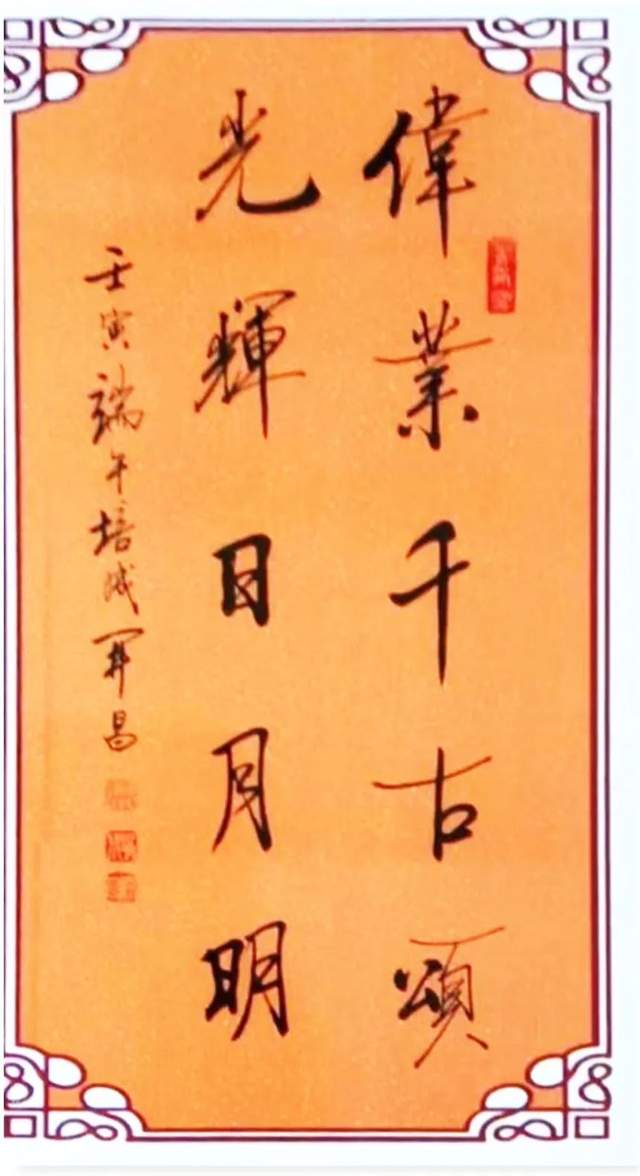 偉業千古頌
光輝日月明
壬寅端午培成開昌